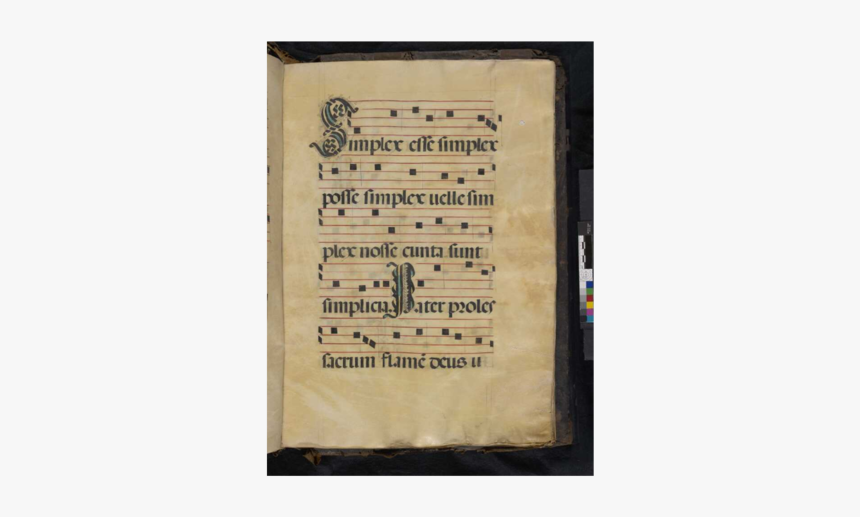 Simplex esse simplex
posse simplex uelle sim
plex nosse cunta sunt
simplicia. Pater proles
sacrum flamē deus u